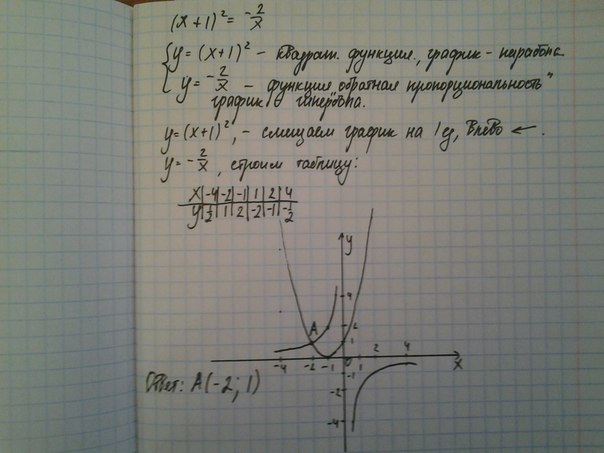 (x+1)² = -2/x
{ y = (x+1)² - квадрат. функция, график - парабола.
y = -2/x - функция "обратная пропорциональность"
график гипербола.
y = (x+1)², - смещаем график на 1 ед, влево ←.
y = -2/x, строим таблицу:
x | -4 | -2 | -1 | 1 | 2 | 4
y | 1/2 | 1 | 2 | -2 | -1 | -1/2
y
4
A 2
1
-4 -2 -1 0 1 2 4 x
-1
-2
-4
Ответ: A(-2; 1)